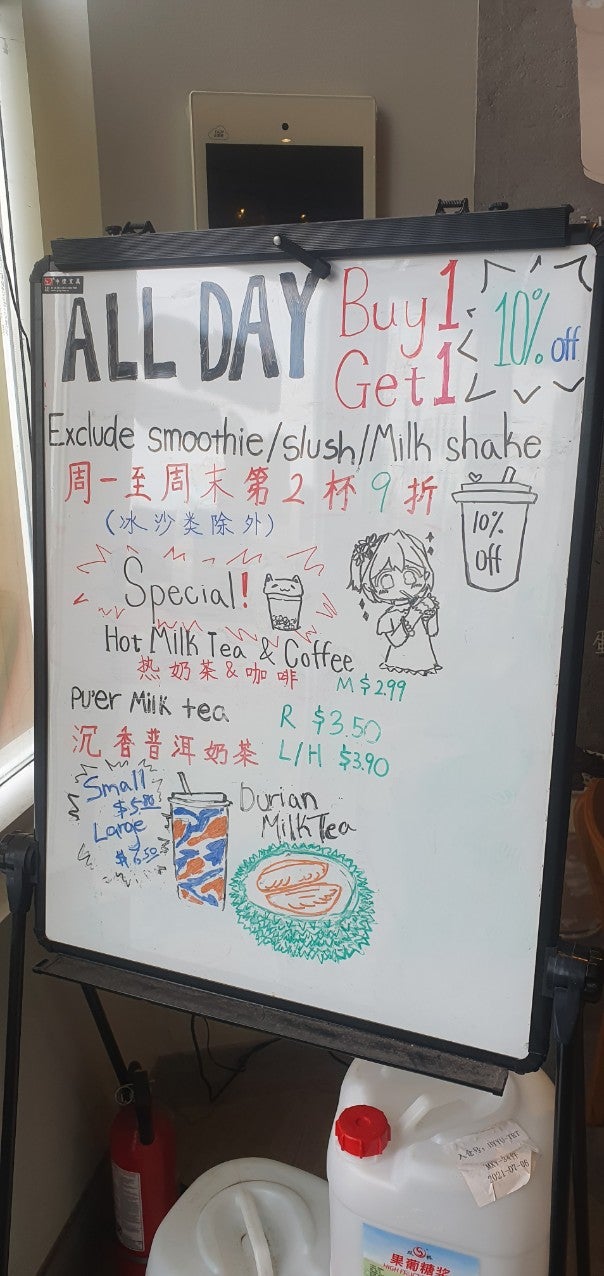 ALL DAY
Buy 1
Get 1
10% off
Exclude smoothie/slush/Milk shake
周一至周末第2杯9折
(冰沙类除外)
10%
off
Special!
Hot Milk Tea & Coffee
热奶茶&咖啡
M $2.99
Pu'er Milk tea
R $3.50
沉香普洱奶茶
L/H $3.90
Small
$5.80
Large
$6.50
Durian
Milk Tea
2021-07-06
果葡糖浆